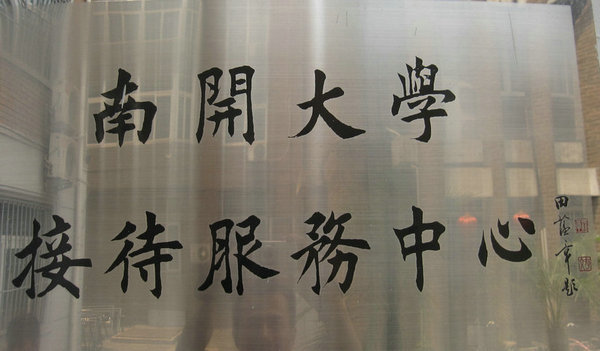 南開大學
接待服務中心
田蘊章題